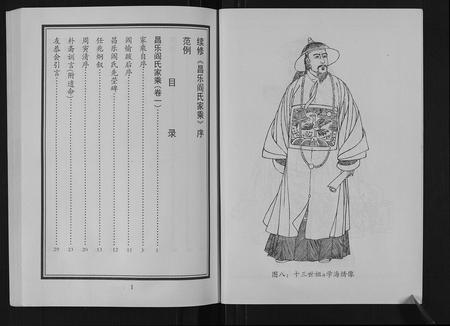 续修《昌乐阎氏家乘》序
范例
目　录
昌乐阎氏家乘(卷一)……1
家乘自序……3
阎愉跋后序……11
昌乐阎氏先茔碑……12
任兆炯叙……13
周寅清序……20
朴斋训言(附遗命)……23
友恭会引言……29
1
图八：十三世祖a学海绣像